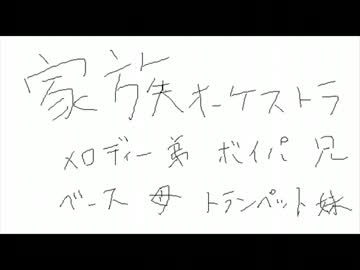 家族オーケストラ
メロディー 弟 ボイパ 兄
ベース 母 トランペット 妹